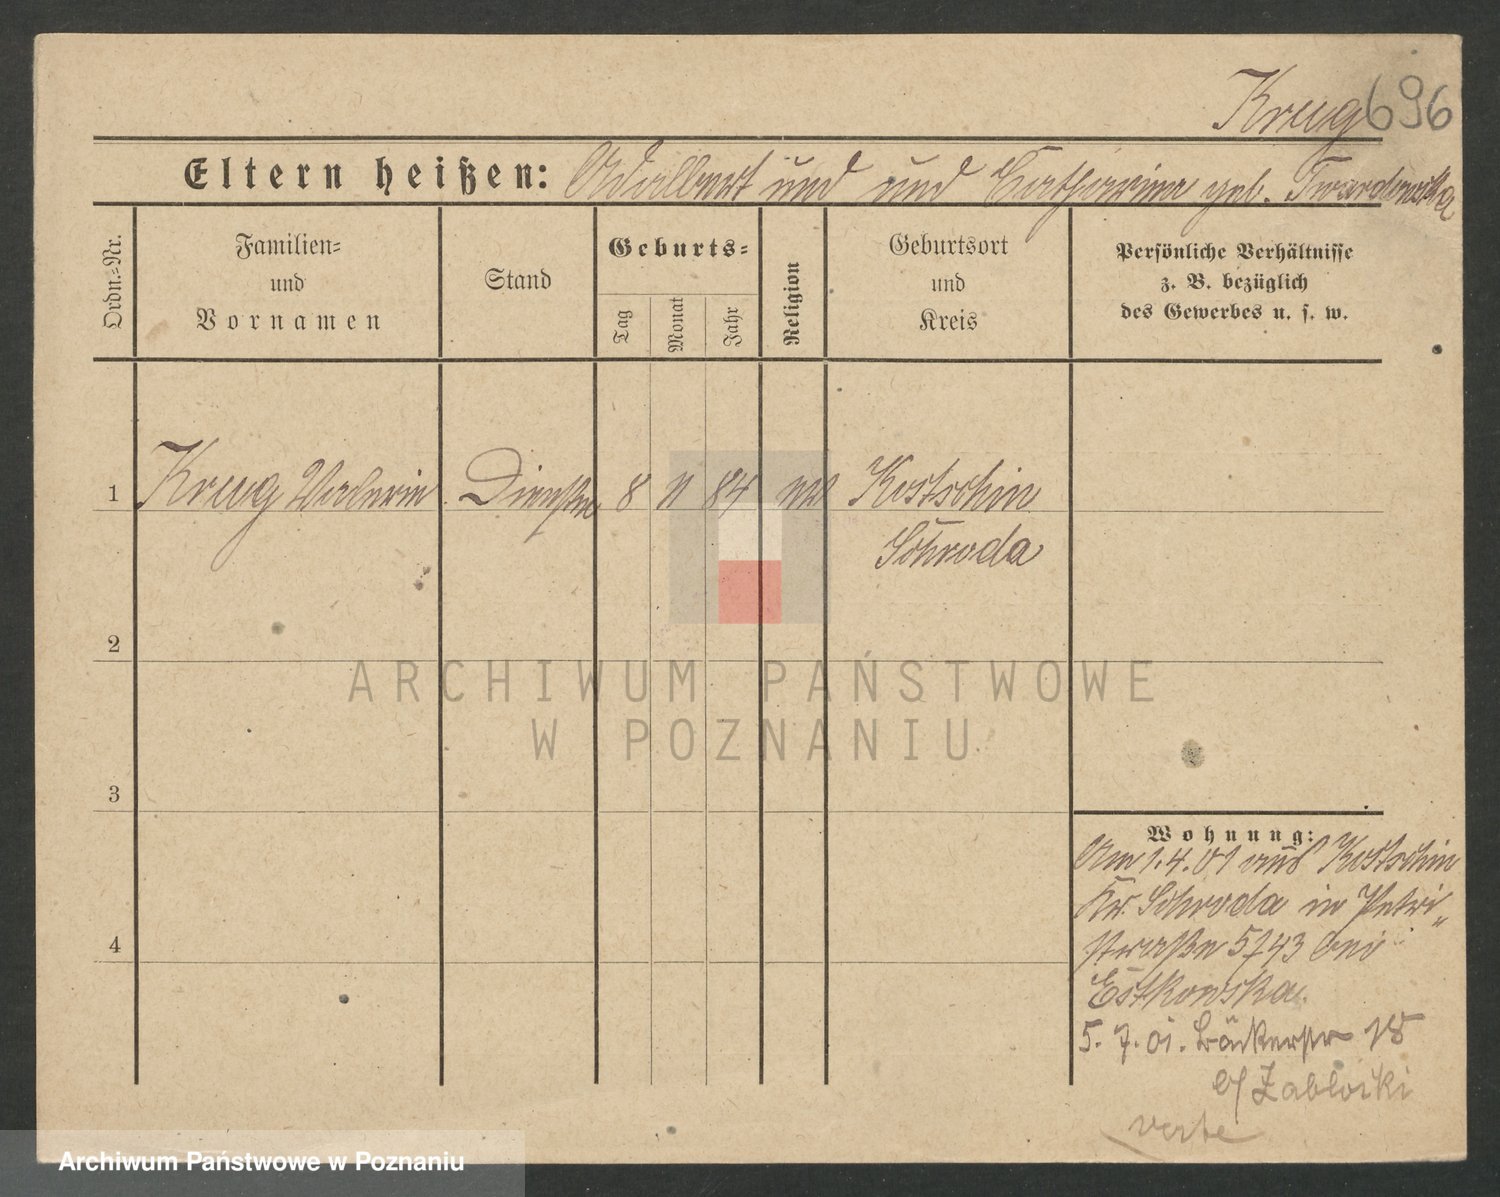 Krug 696
Eltern heißen: Adalbert und und Catharina geb. Twardowska
Ordn.-Nr.
Familien-
und
Vornamen
Stand
Geburts-
Tag
Monat
Jahr
Religion
Geburtsort
und
Kreis
Persönliche Verhältnisse
z. B. bezüglich
des Gewerbes u. s. w.
1 Krug Valerie 8 84 Kostschin
Schroda
2
3
4
Wohnung:
Am 1.4.01 aus Kostschin
Kr. Schroda in Petri"
straße bei
Estkowska.
5. 7. 01. Bäckerstr 18
b/ Zablocki
verte
ARCHIWUM PAŃSTWOWE
W POZNANIU
Archiwum Państwowe w Poznaniu